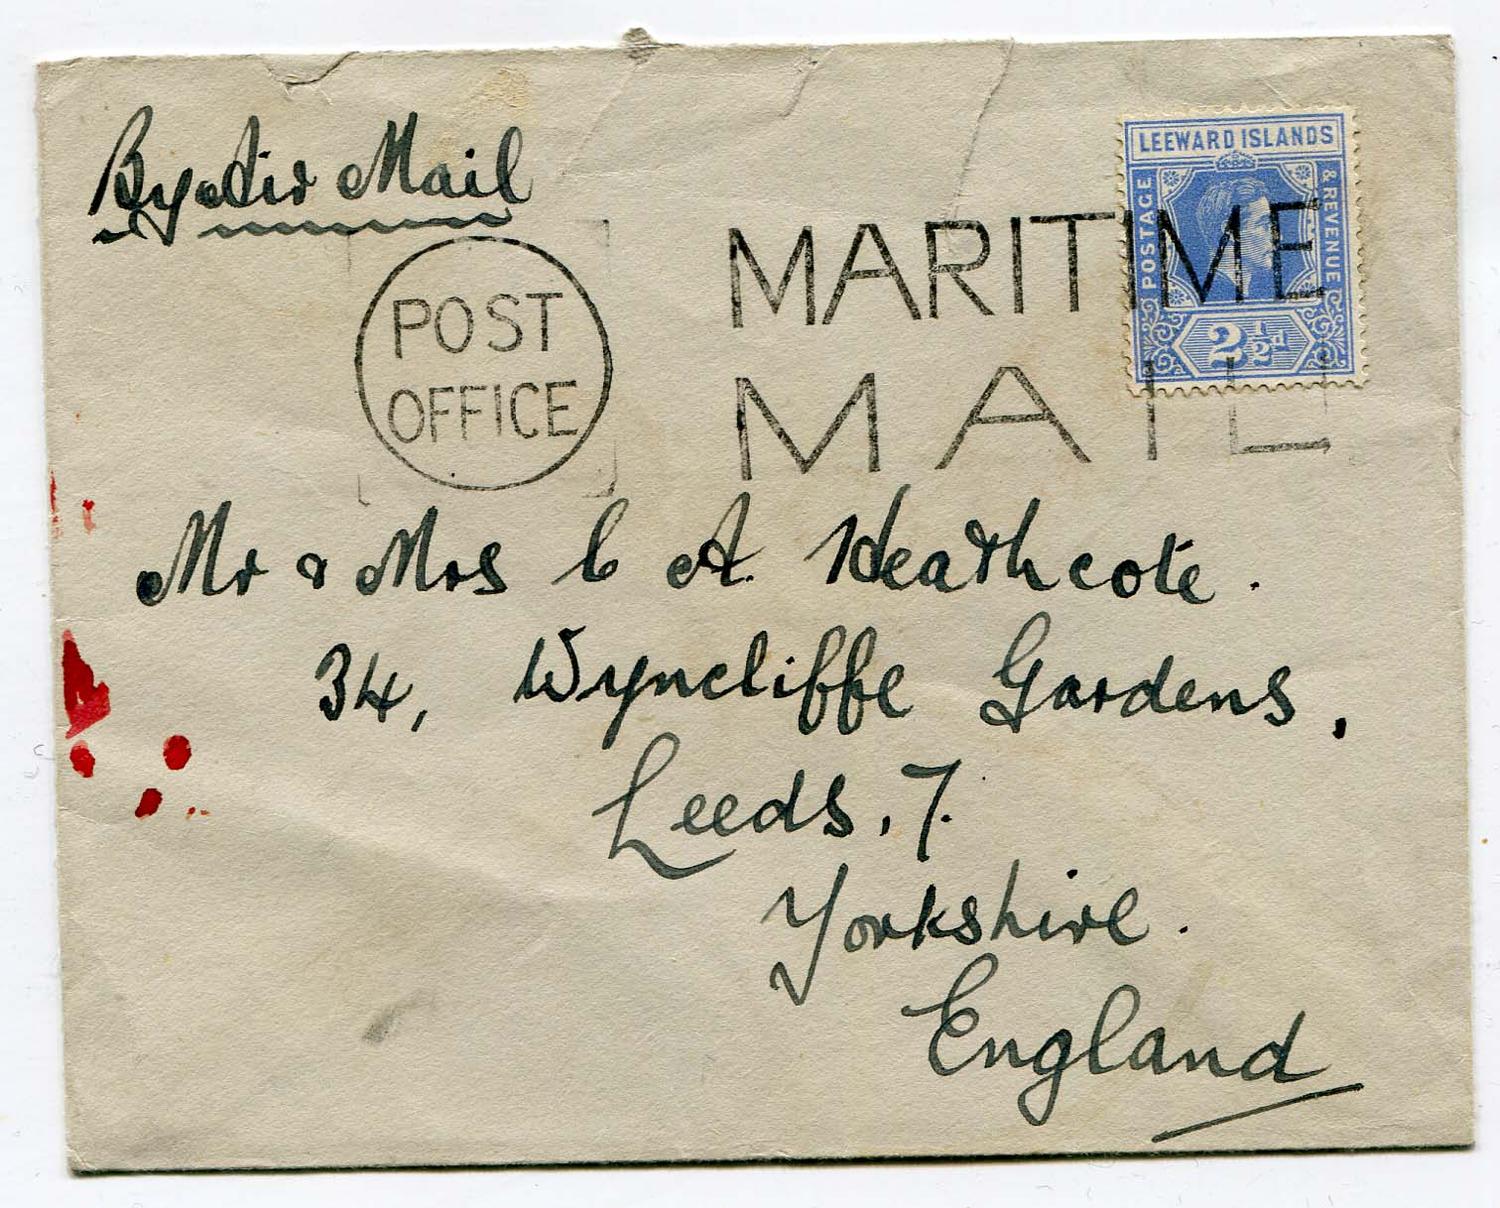 By Air Mail
LEEWARD ISLANDS
POSTAGE
& REVENUE
2½d
POST
OFFICE
MARITIME
MAIL
Mr & Mrs C A. Heathcote.
34, Wyncliffe Gardens,
Leeds, 7.
Yorkshire.
England